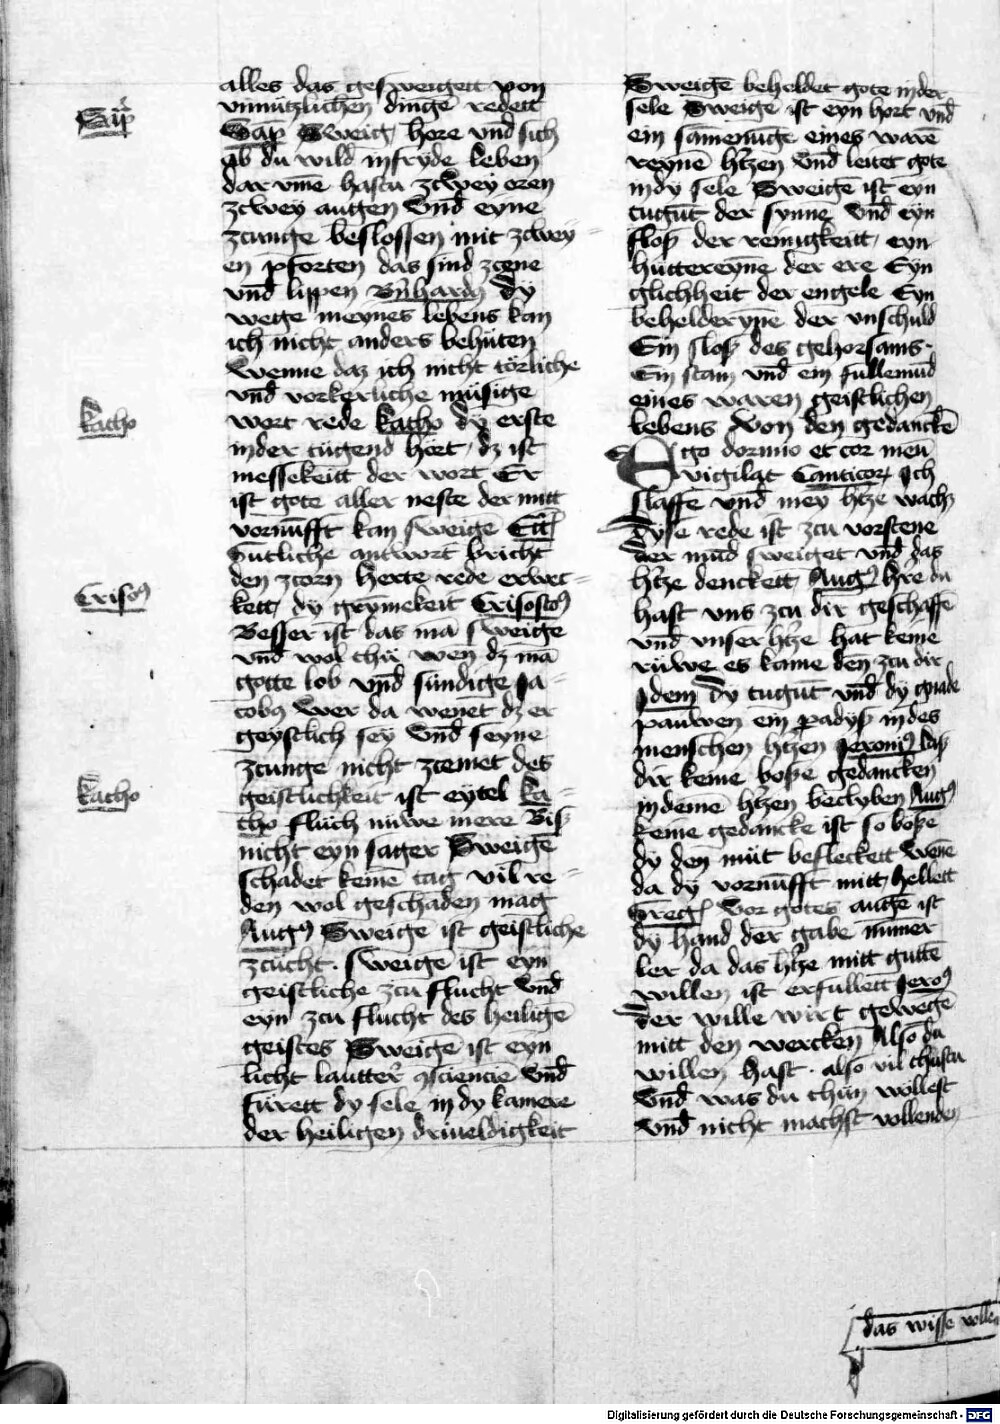 alles das gesweigett von
vnnutzlichen dinge redett
Sap Sweig here vnd sich
ab du wild infryde leben
dar vme hastu zcwey oren
zcwey augen vnd eyne
zcunge beslossen mit zcwey=
en pforten das sind zcene
vnd lippen Bnhardy dy
wege meynes lebens kan
ich nicht anders behüten
wenne daz ich nicht törliche
vnd vorkerliche müsige
wort rede katho dy erste
inder tügend hört dz ist
messekeitt der wort Er
ist gote aller neste der mitt
vornüfft kan sweige Ecc
Gutliche antwort bricht
den zcorn herte rede erwec=
kett dy grymekeit Crisosto9
Besser ist das mā sweige
vnd wol thü wen dz mā
gotte lob vnd sündige Ja=
cob9 wer da wenet dz er
geystlich sey vnd seyne
zcunge nicht zcemet des
geistlichkeit ist eytel ka=
tho fluch nuwe mere Biß
nicht eyn sager Sweigē
schadet kemē tag vil re=
den wol geschaden mag
Aug9 Sweige ist geistliche
zcucht. sweigē ist eyn
geistliche zcu flucht vnd
eyn zcu flucht des heiligē
geistes Sweige ist eyn
licht lautter 9sciencie vnd
fürett dy sele in dy kamere
der heiligen driueldigkeit
Sap
katho
Criso9
katho
Sweigē beheldet gote inder
sele Sweige ist eyn hort vnd
ein samenuge eines warē
reynē htzen vnd leitet gote
indy sele Sweigē ist eyn
tugūt der synne vnd eyn
sloß der reinigkeitt eyn
hüttereynē der ere Eyn
glichheit der engele Eyn
behelderynē der vnschuld
Ein sloß des gehorsams.
Ein stam vnd ein fullemūd
eines waren geistlichen
lebens Von den gedanckē
Ego dormio et cor meū
vigilat Canticor Ich
slaffe vnd mey htze wach
Dyse rede ist zcu vorstene
der mūd sweiget vnd das
htze denckett Aug9 hre du
hast vns zcu dir geschaffē
vnd vnser htze hat keme
rüwe es kame den zcu dir
Idem dy tugūt vnd dy gnade
pauwen ein padyß indes
menschen htzen Jeronim9 laß
dir keme boße gedancken
indemē htzen beclyben Aug9
keine gedancke ist so boße
dy den müt befleckett wenē
da dy vornüfft mitt hellett
Greg9 Vor gotes augē ist
dy hand der gabe nūmer
ler da das htze mitt guttē
willen ist erfullett Jero9
Der wille wirt gewegē
mitt den wercken Also du
willen hast. also vil thustu
vnd was du thün wollest
vnd nicht machst vollenden
das wisse volle
Digitalisierung gefördert durch die Deutsche Forschungsgemeinschaft - DFG